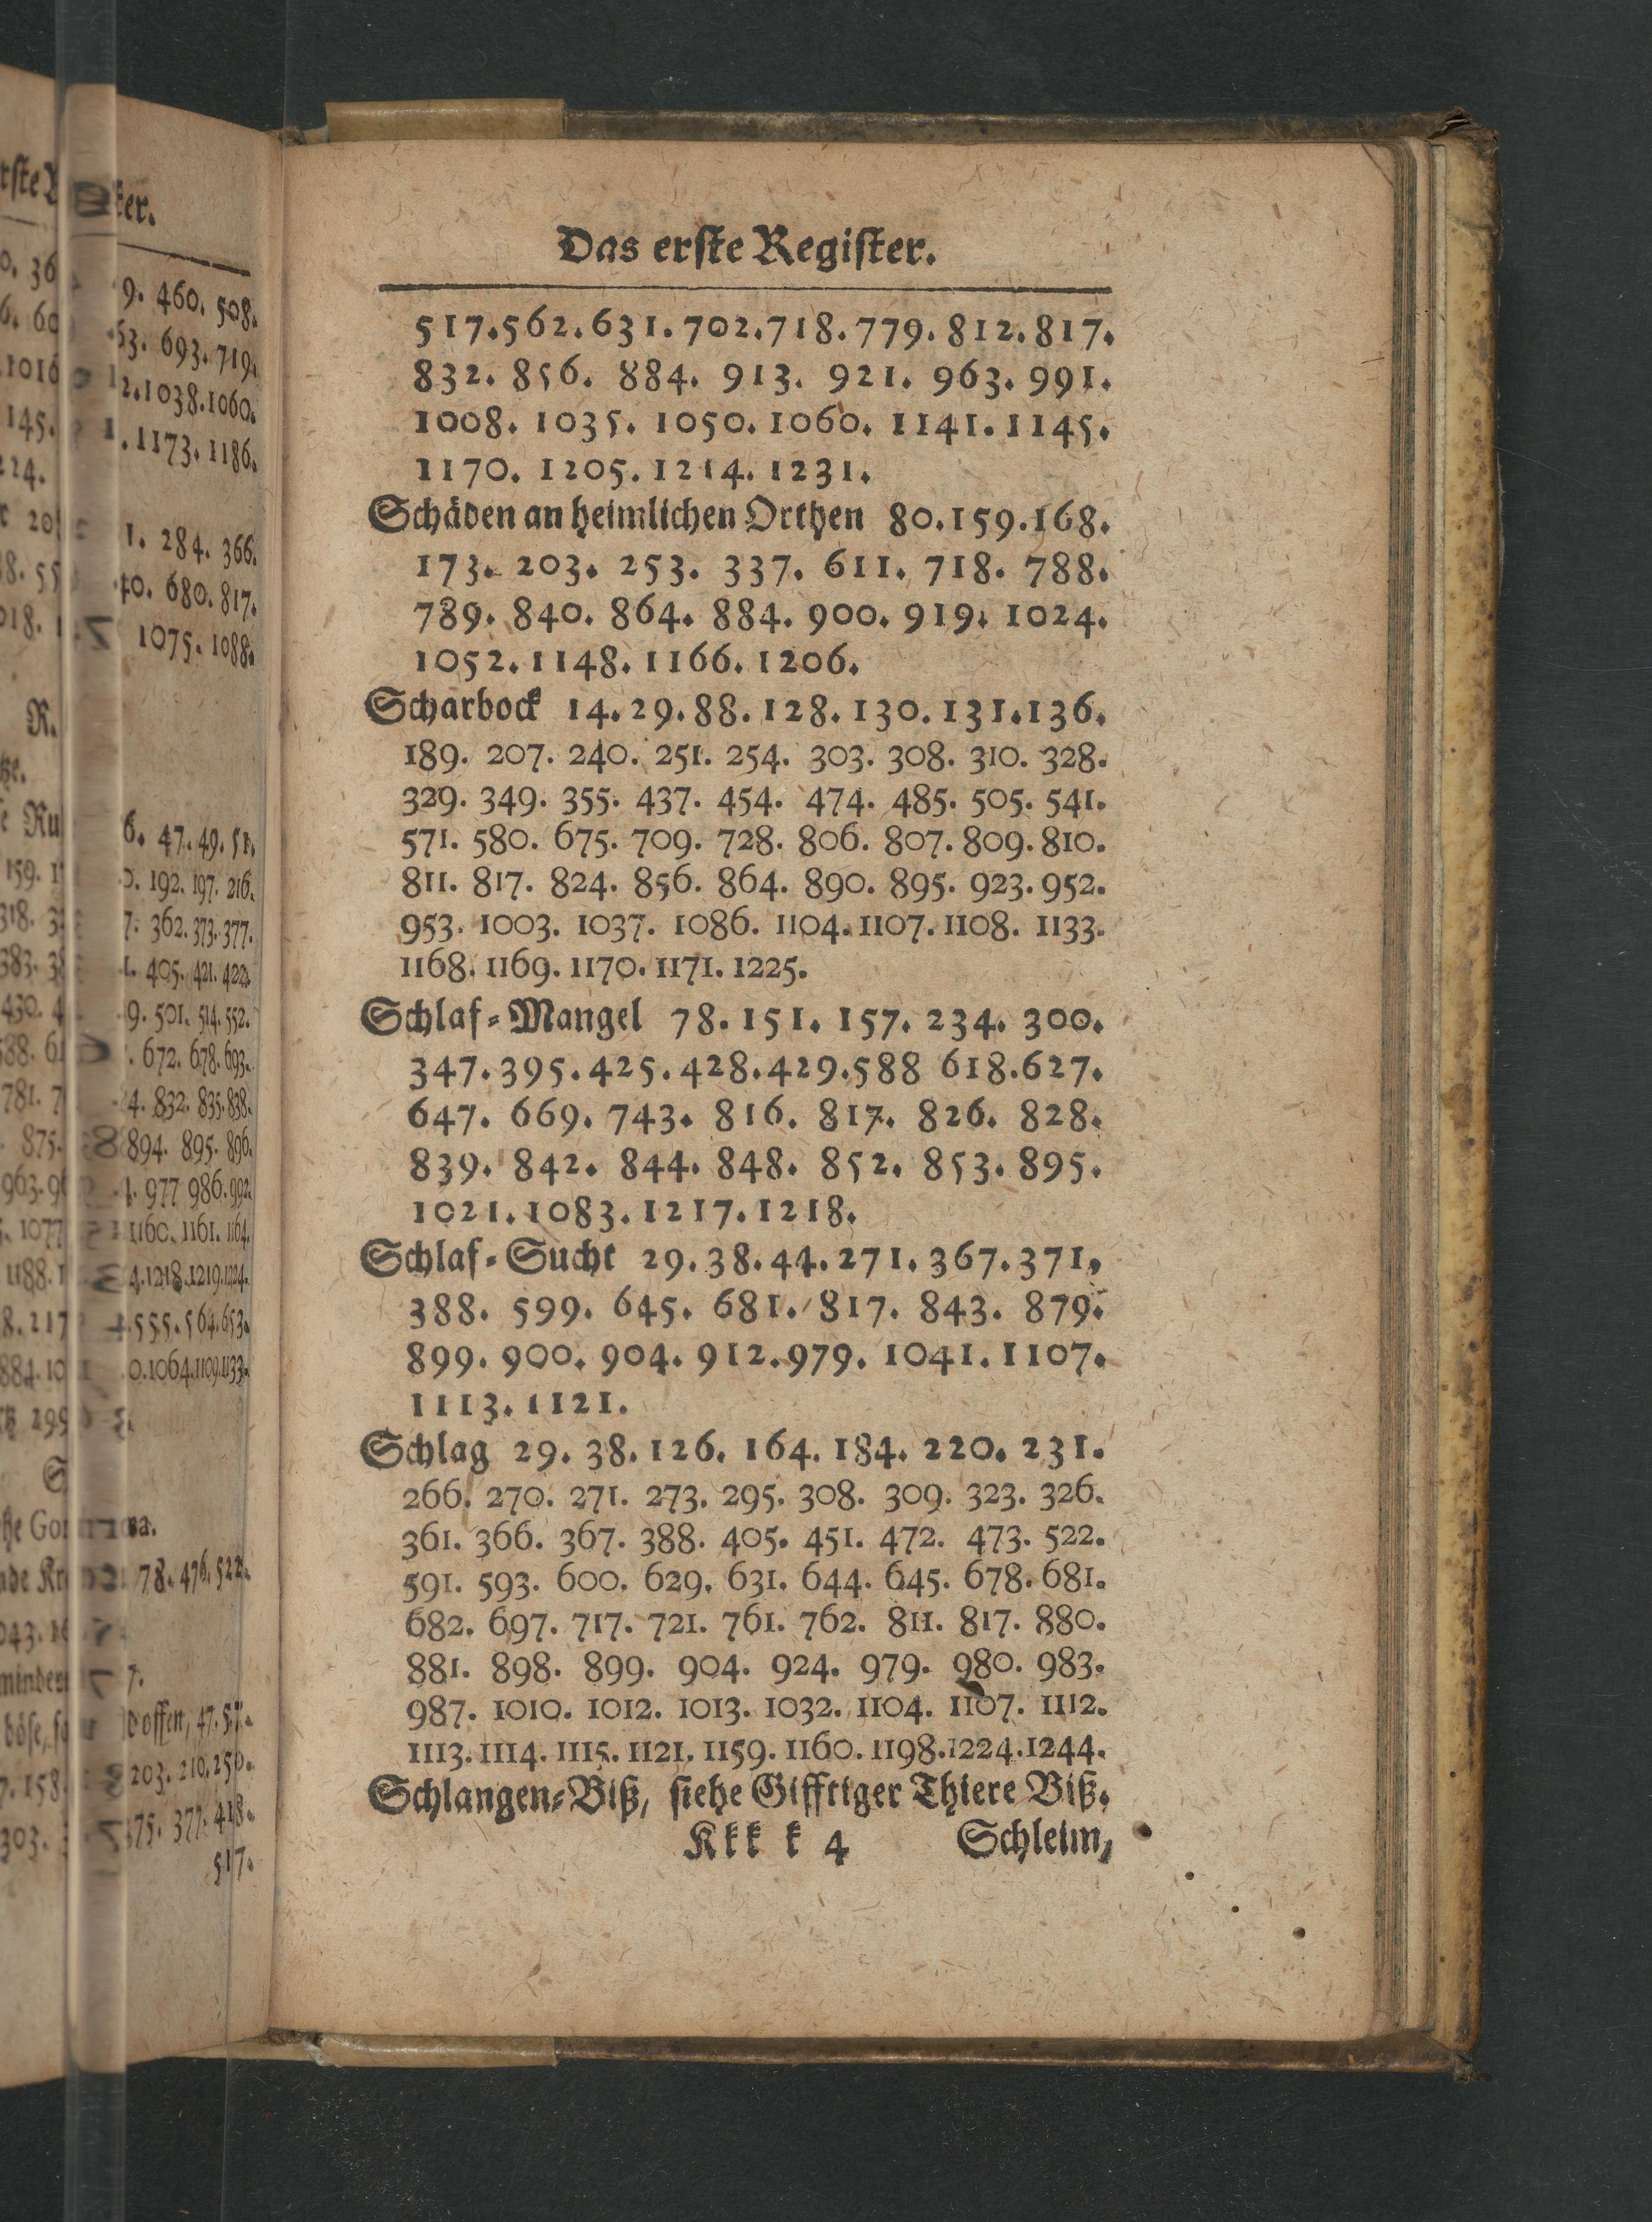 Das erste Register.
517.562.631.702.718.779.812.817.
832. 856. 884. 913. 921. 963. 991.
1008. 1035. 1050. 1060. 1141. 1145.
1170. 1205. 1214. 1231.
Schäden an heimlichen Orthen 80.159.168.
173. 203. 253. 337. 611. 718. 788.
789. 840. 864. 884. 900. 919. 1024.
1052. 1148. 1166. 1206.
Scharbock 14. 29. 88. 128. 130. 131. 136.
189. 207. 240. 251. 254. 303. 308. 310. 328.
329. 349. 355. 437. 454. 474. 485. 505. 541.
571. 580. 675. 709. 728. 806. 807. 809. 810.
811. 817. 824. 856. 864. 890. 895. 923. 952.
953. 1003. 1037. 1086. 1104. 1107. 1108. 1133.
1168. 1169. 1170. 1171. 1225.
Schlaf-Mangel 78. 151. 157. 234. 300.
347. 395. 425. 428. 429. 588 618. 627.
647. 669. 743. 816. 817. 826. 828.
839. 842. 844. 848. 852. 853. 895.
1021. 1083. 1217. 1218.
Schlaf-Sucht 29. 38. 44. 271. 367. 371.
388. 599. 645. 681. 817. 843. 879.
899. 900. 904. 912. 979. 1041. 1107.
1113. 1121.
Schlag 29. 38. 126. 164. 184. 220. 231.
266. 270. 271. 273. 295. 308. 309. 323. 326.
361. 366. 367. 388. 405. 451. 472. 473. 522.
591. 593. 600. 629. 631. 644. 645. 678. 681.
682. 697. 717. 721. 761. 762. 811. 817. 880.
881. 898. 899. 904. 924. 979. 980. 983.
987. 1010. 1012. 1013. 1032. 1104. 1107. 1112.
1113. 1114. 1115. 1121. 1159. 1160. 1198. 1224. 1244.
Schlangen-Biß, siehe Gifftiger Thiere Biß.
Kkk k 4 Schleim,